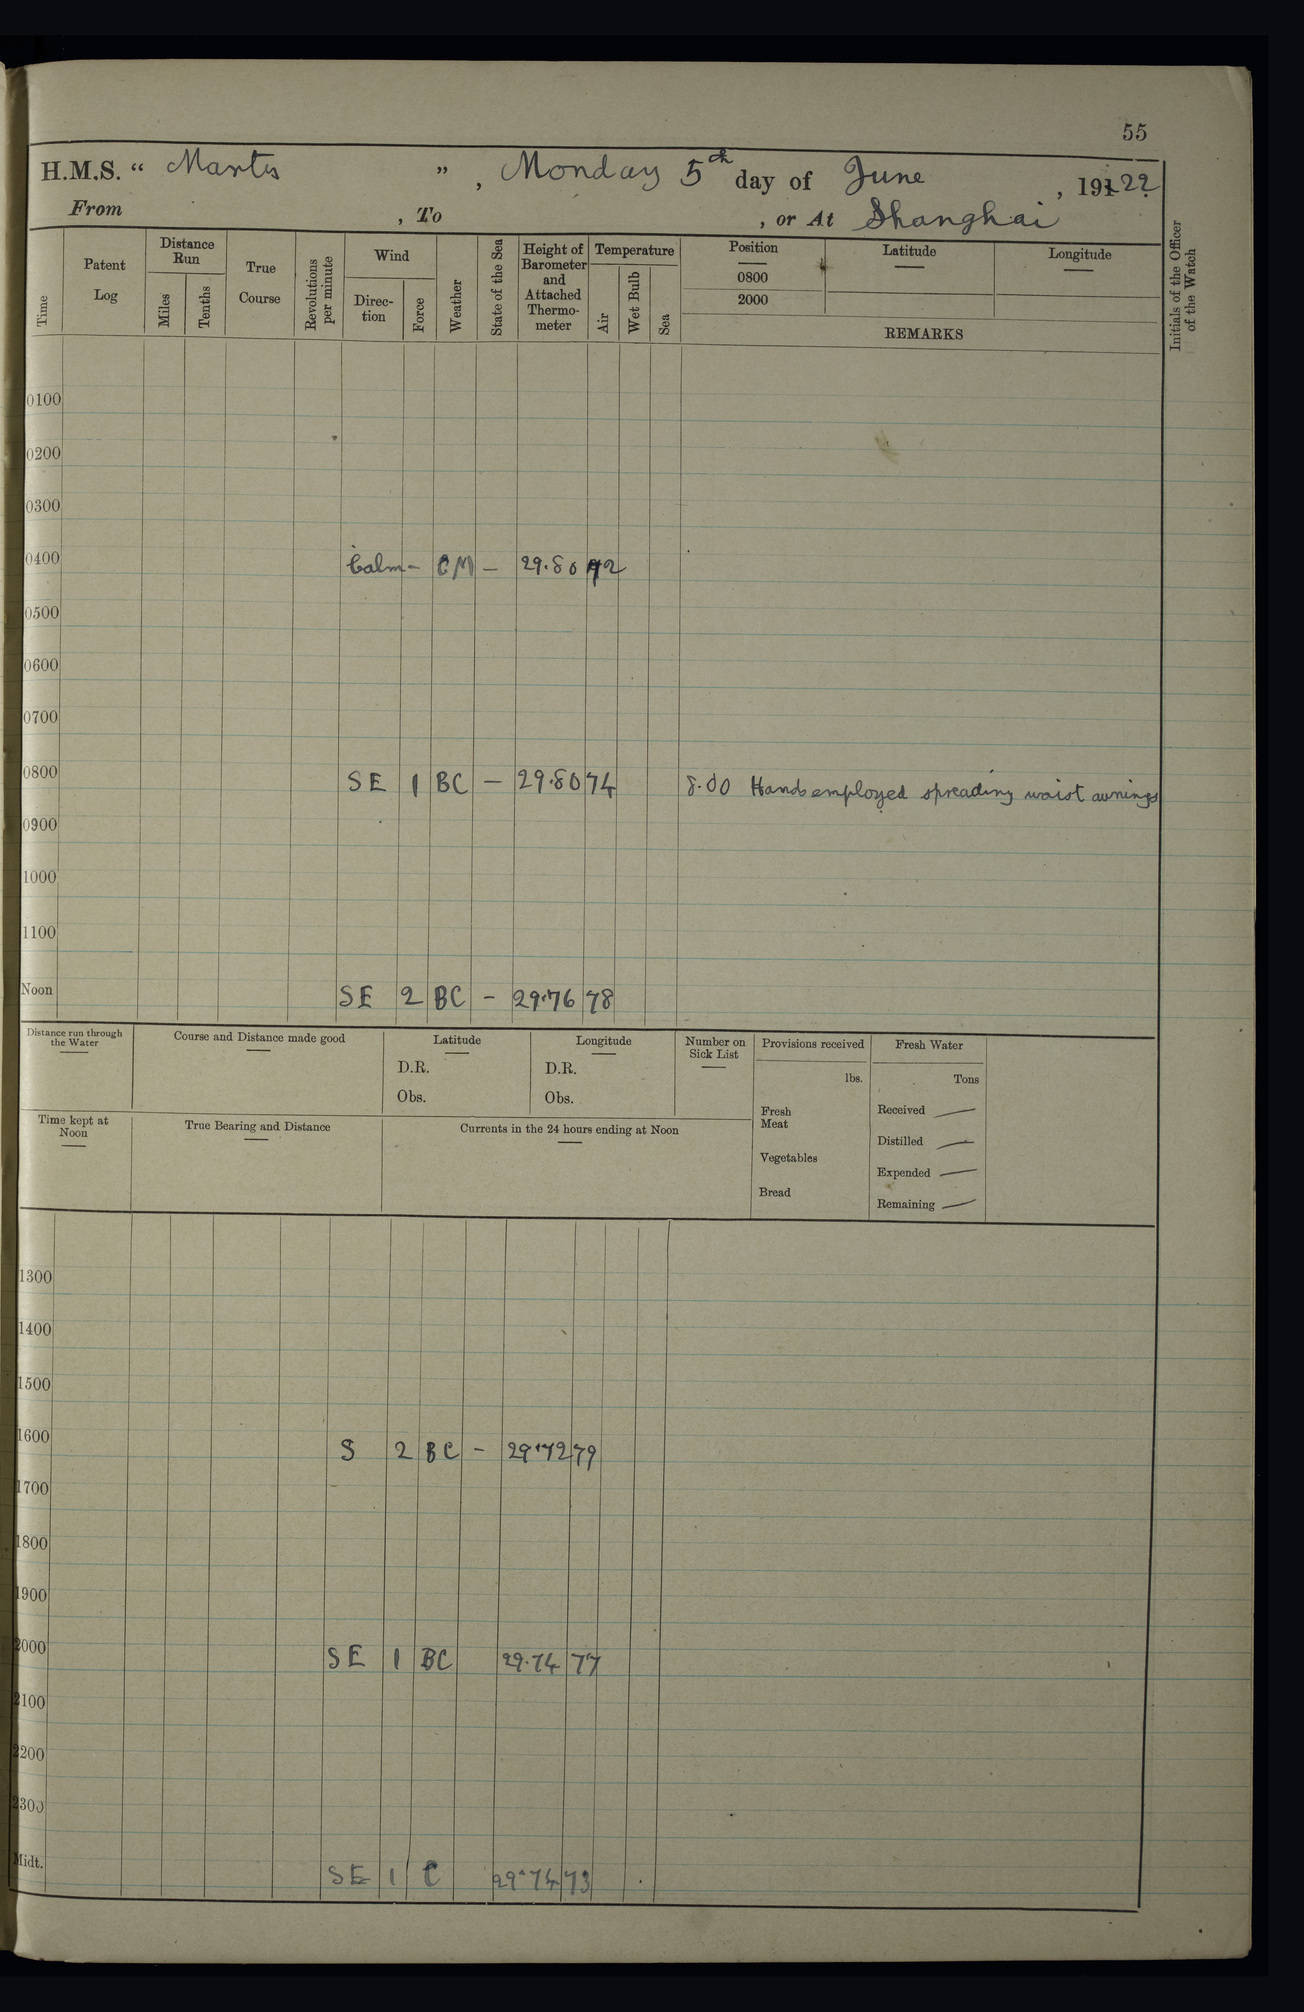 55
H.M.S. " Mantis ", Monday 5th day of June, 19122.
From , To , or At Shanghai
Time
Patent Log
Distance Run
Miles
Tenths
True Course
Revolutions per minute
Wind
Direc-tion
Force
Weather
State of the Sea
Height of Barometer and Attached Thermo-meter
Temperature
Air
Wet Bulb
Sea
Position
0800
2000
Latitude
Longitude
REMARKS
Initials of the Officer of the Watch
0100
0200
0300
0400 Calm – CM – 29.80 72
0500
0600
0700
0800 SE 1 BC – 29.80 74 8.00 Hands employed spreading waist awnings
0900
1000
1100
Noon SE 2 BC – 29.76 78
Distance run through the Water
Course and Distance made good
Latitude
D.R.
Obs.
Longitude
D.R.
Obs.
Number on Sick List
Provisions received
lbs.
Fresh Meat
Vegetables
Bread
Fresh Water
Tons
Received —
Distilled —
Expended —
Remaining —
Time kept at Noon
True Bearing and Distance
Currents in the 24 hours ending at Noon
1300
1400
1500
1600 S 2 BC – 29.72 79
1700
1800
1900
2000 SE 1 BC 29.74 77
2100
2200
2300
Midt. SE 1 C 29.74 73